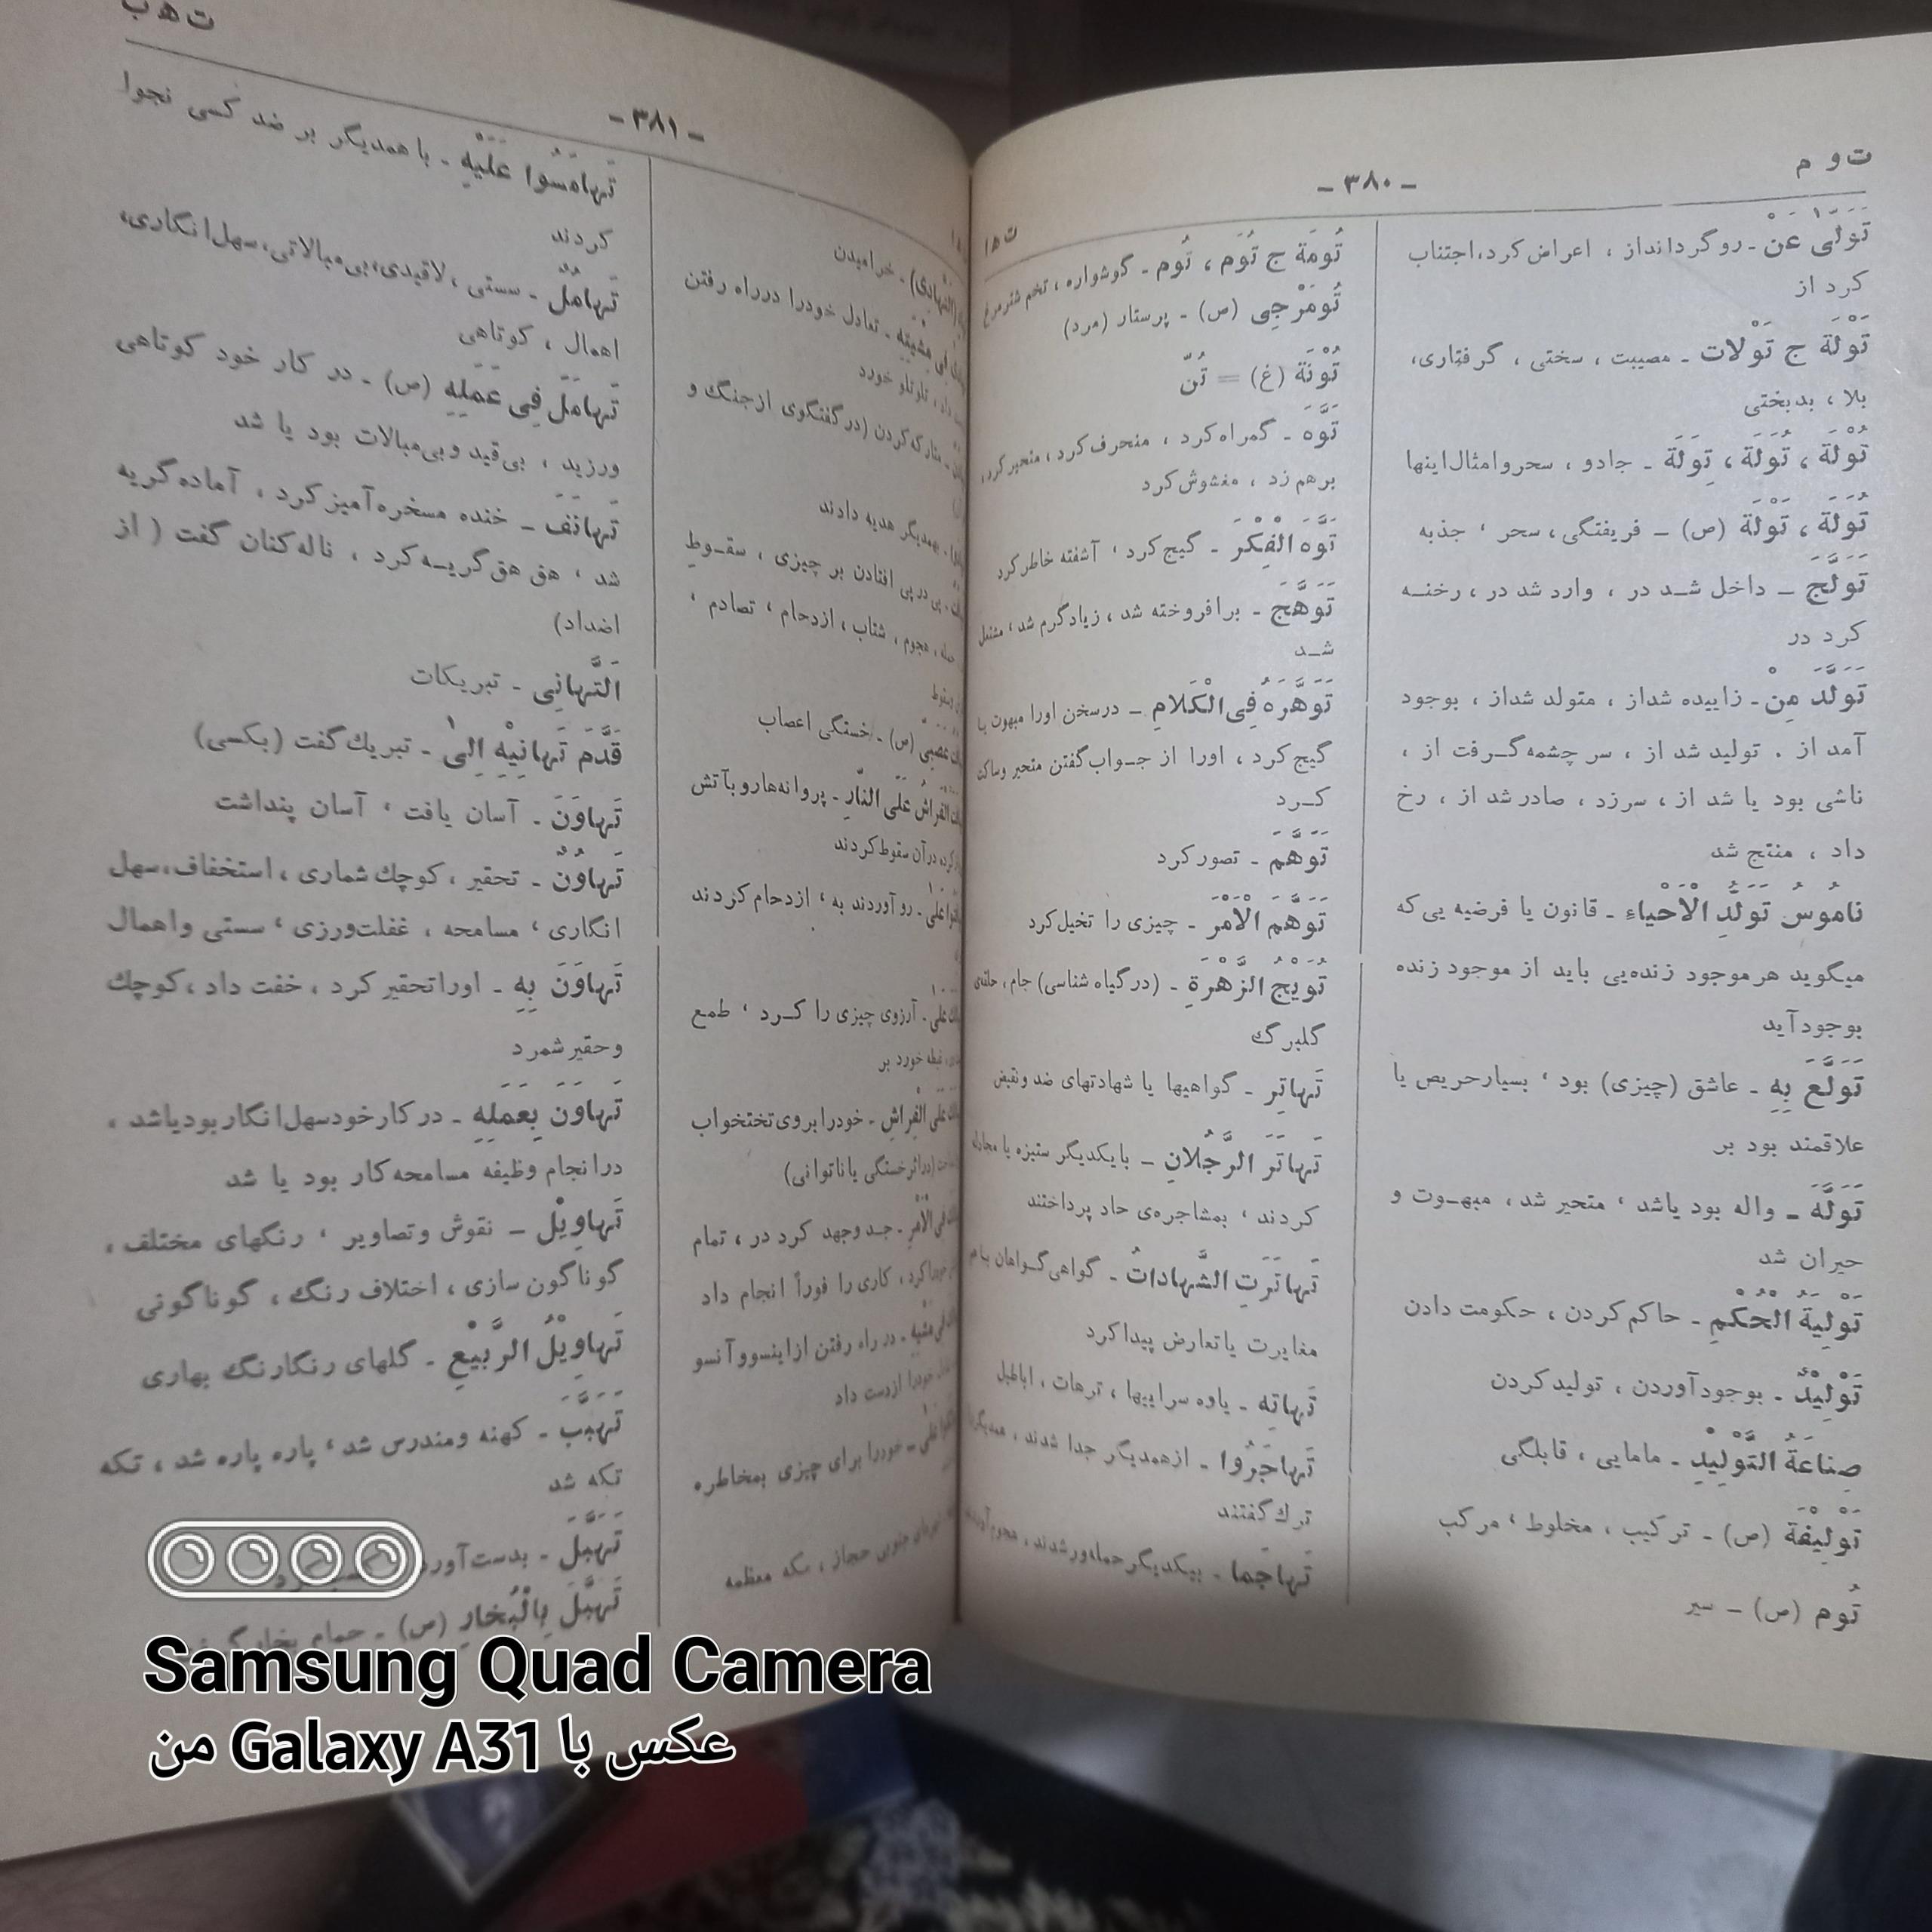 ت و م
- ۳۸۰ -
ت ه ا
تَوَلّىٰ عَنْ - رو گرداند از ، اعراض کرد، اجتناب
کرد از
تَوْلَة ج تَوْلات - مصیبت ، سختی ، گرفتاری،
بلا ، بدبختی
تُوْلَة ، تُوَلَة ، تِوَلَة - جادو ، سحر و امثال اینها
تُوَلَة ، تَوْلَة (ص) - فریفتگی ، سحر ، جذبه
تَوَلَّجَ - داخل شد در ، وارد شد در ، رخنه
کرد در
تَوَلَّدَ مِنْ - زاییده شد از ، متولد شد از ، بوجود
آمد از . تولید شد از ، سر چشمه گرفت از ،
ناشی بود یا شد از ، سرزد ، صادر شد از ، رخ
داد ، منتج شد
نامُوسُ تَوَلُّدِ الْاَحْیاءِ - قانون یا فرضیه یی که
میگوید هر موجود زنده یی باید از موجود زنده
بوجود آید
تَوَلَّعَ بِهِ - عاشق (چیزی) بود ، بسیار حریص یا
علاقمند بود بر
تَوَلَّهَ - واله بود یا شد ، متحیر شد ، مبهوت و
حیران شد
تَوْلِیَةُ الْحُکْمِ - حاکم کردن ، حکومت دادن
تَوْلِیْدٌ - بوجود آوردن ، تولید کردن
صِناعَةُ التَّوْلِیْدِ - مامایی ، قابلگی
تَوْلِیْفَة (ص) - ترکیب ، مخلوط ، مرکب
تُوم (ص) - سیر
تُومَة ج تُوَم ، تُوم - گوشواره ، تخم شترمرغ
تُومَرْجِی (ص) - پرستار (مرد)
تُوْنَة (غ) = تُنّ
تَوَّهَ - گمراه کرد ، منحرف کرد ، متحیر کرد،
برهم زد ، مغشوش کرد
تَوَّهَ الْفِکْرَ - گیج کرد ، آشفته خاطر کرد
تَوَهَّجَ - برافروخته شد ، زیاد گرم شد ، مشتعل
شد
تَوَهَّرَهُ فِی الْکَلامِ - در سخن اورا مبهوت یا
گیج کرد ، اورا از جواب گفتن متحیر و ساکت
کرد
تَوَهَّمَ - تصور کرد
تَوَهَّمَ الْاَمْرَ - چیزی را تخیل کرد
تُوَیْجُ الزَّهْرَةِ - (در گیاه شناسی) جام ، حلقه‌ی
گلبرگ
تَهاتِر - گواهیها یا شهادتهای ضد و نقیض
تَهاتَرَ الرَّجُلانِ - با یکدیگر ستیزه یا مجادله
کردند ، بمشاجره‌ی حاد پرداختند
تَهاتَرَتِ الشَّهاداتُ - گواهی گواهان با هم
مغایرت یا تعارض پیدا کرد
تَهاتِه - یاوه سراییها ، ترهات ، اباطیل
تَهاجَرُوا - از همدیگر جدا شدند ،
ترك گفتند
تَهاجَما - بیکدیگر حمله‌ور شدند ،
ت ه ب
- ۳۸۱ -
(التَّهادِی) - خرامیدن
فِی مِشْیَتِهِ - تعادل خودرا در راه رفتن
داد ، تلوتلو خورد
متارکه کردن (در گفتگوی از جنگ و
بهمدیگر هدیه دادند
پی در پی افتادن بر چیزی ، سقوط
حمله ، هجوم ، شتاب ، ازدحام ، تصادم ،
عَصَبِیّ (ص) - خستگی اعصاب
الْفَراشُ عَلَی النّارِ - پروانه ها رو بآتش
در آن سقوط کردند
عَلىٰ - رو آوردند به ، ازدحام کردند
عَلىٰ - آرزوی چیزی را کرد ، طمع
غبطه خورد بر
عَلَی الْفِراشِ - خودرا بروی تختخواب
(بر اثر خستگی یا ناتوانی)
فِی الْاَمْرِ - جد و جهد کرد در ، تمام
کرد ، کاری را فوراً انجام داد
فِی مَشْیِهِ - در راه رفتن از اینسو و آنسو
خودرا از دست داد
عَلىٰ - خودرا برای چیزی بمخاطره
جنوبی حجاز ، مکه معظمه
تَهامَسُوا عَلَیْهِ - با همدیگر بر ضد کسی نجوا
کردند
تَهامُلٌ - سستی ، لاقیدی، بی مبالاتی، سهل انگاری،
اهمال ، کوتاهی
تَهامَلَ فِی عَمَلِهِ (ص) - در کار خود کوتاهی
ورزید ، بی قید و بی مبالات بود یا شد
تَهانَفَ - خنده مسخره آمیز کرد ، آماده گریه
شد ، هق هق گریه کرد ، ناله کنان گفت ( از
اضداد)
اَلتَّهانِی - تبریکات
قَدَّمَ تَهانِیْهِ اِلىٰ - تبریك گفت (بکسی)
تَهاوَنَ - آسان یافت ، آسان پنداشت
تَهاوُنٌ - تحقیر ، کوچك شماری ، استخفاف، سهل
انگاری ، مسامحه ، غفلت ورزی ، سستی و اهمال
تَهاوَنَ بِهِ - اورا تحقیر کرد ، خفت داد ، کوچك
و حقیر شمرد
تَهاوَنَ بِعَمَلِهِ - در کار خود سهل انگار بود یا شد ،
در انجام وظیفه مسامحه کار بود یا شد
تَهاوِیْل - نقوش و تصاویر ، رنگهای مختلف ،
گوناگون سازی ، اختلاف رنگ ، گوناگونی
تَهاوِیْلُ الرَّبِیْعِ - گلهای رنگارنگ بهاری
تَهَبَّبَ - کهنه و مندرس شد ، پاره پاره شد ، تکه
تکه شد
تَهَبَّلَ - بدست آورد
تَهَبَّلَ بِالْبُخارِ (ص) - حمام بخار
Samsung Quad Camera
عکس با Galaxy A31 من